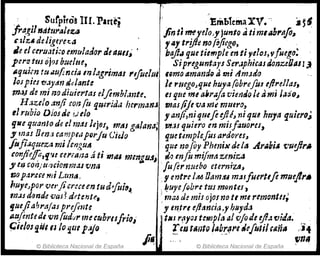 Suspiros III. Parte,
fragil naturaleza
culza de ligereza
de el ceruatico emulador de aues,
pero tus ojos huelue,
aquien tu aufencia en lagrimas
los pies vayan de lante
mas de mi no diuiertas el semblante.
Hazelo ansi con su querida hermana
el rubio Dios de velo
que quando de el mas lejos, mas galana
y mas llena campea por su Cielo
su flaqueza mi lengua
confiesso, que cercana á ti mas mengua,
y tu con
no parece mi Luna.
huye, por ver si crece en tu desuio,
mas donde vas? detente,
que si abrasas presente
ausente de vn sudor me cubres frio,
Cielos què es lo que pajo
Emblema XV. 25
sin ti me yelo, y junto à ti me abraso,
y ay triste no sosiego,
basta que temple en ti yelos, y fuego.
Si preguntays Seraphicas donzellas
como amando à mi Amado
le ruego, que huya sobre sus estrellas,
es que me abrasa viendole à mi lado,
mas si se va me muero,
y ansi, ni que se esté, ni que huya quiero;
mas quiero en mis fauores,
que temple sus ardores,
que no soy Phenix de la Arabia vuestra
do en su misma zeniza
suser nuebo eterniza,
y entre las Damas mas fuerte se muestra
huye sobre tus montes,
mas de mis ojos no te me remontes;
y entre estancia, y huyda
tus rayos templa al vso de esta vida.
vna
© Biblioteca Nacional de España
© Biblioteca Nacional de España